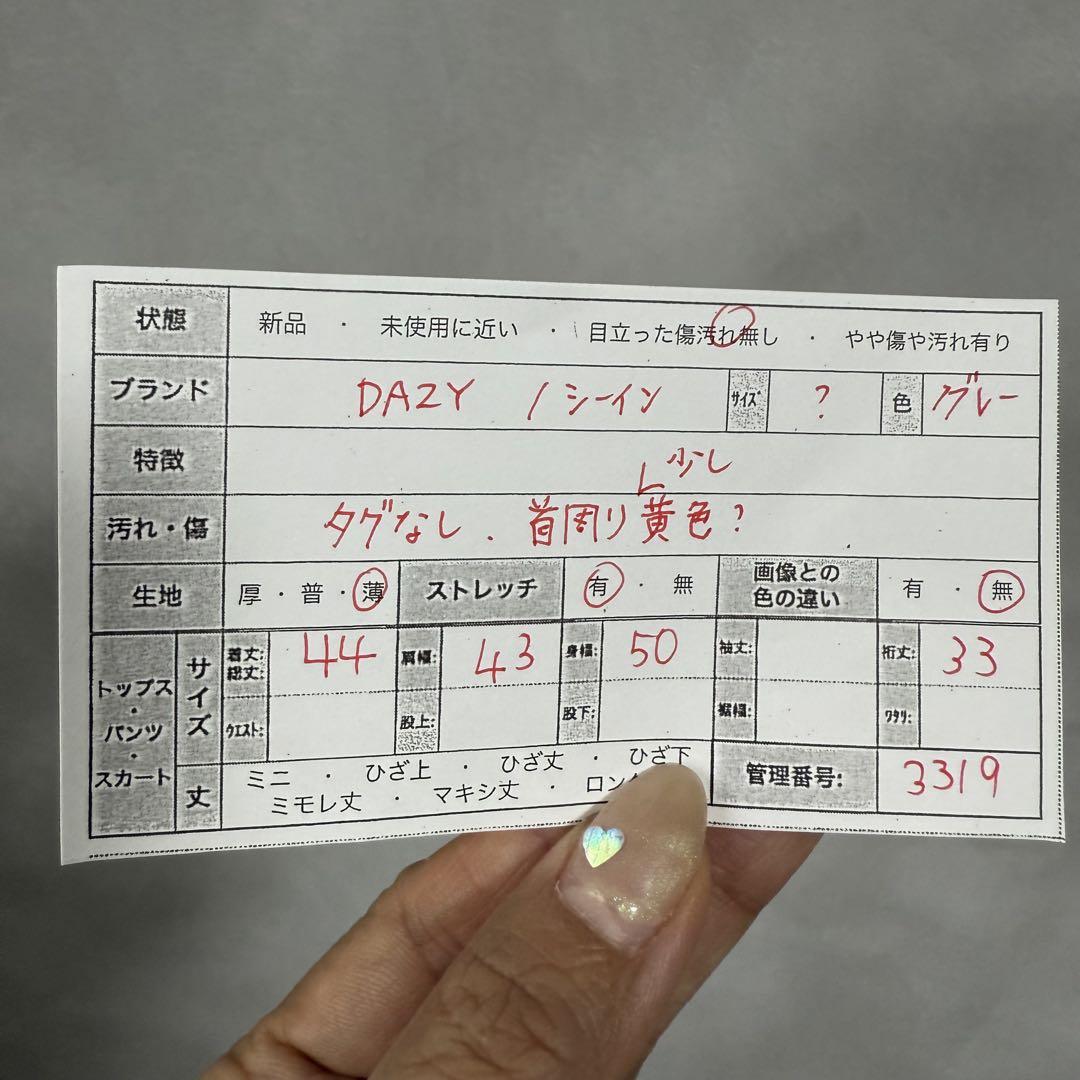 状態 新品 ・ 未使用に近い ・ 目立った傷汚れ無し ・ やや傷や汚れ有り
ブランド DAZY / シーイン サイズ ? 色 グレー
特徴
少し
汚れ・傷 タグなし、首周り黄色?
生地 厚・普・薄 ストレッチ 有・無 画像との色の違い 有・無
トップス・パンツ・スカート サイズ 着丈:総丈: 44 肩幅: 43 身幅: 50 袖丈: 裄丈: 33
ウエスト: 股上: 股下: 裾幅: ワタリ:
丈 ミニ ・ ひざ上 ・ ひざ丈 ・ ひざ下 管理番号: 3319
ミモレ丈 ・ マキシ丈 ・